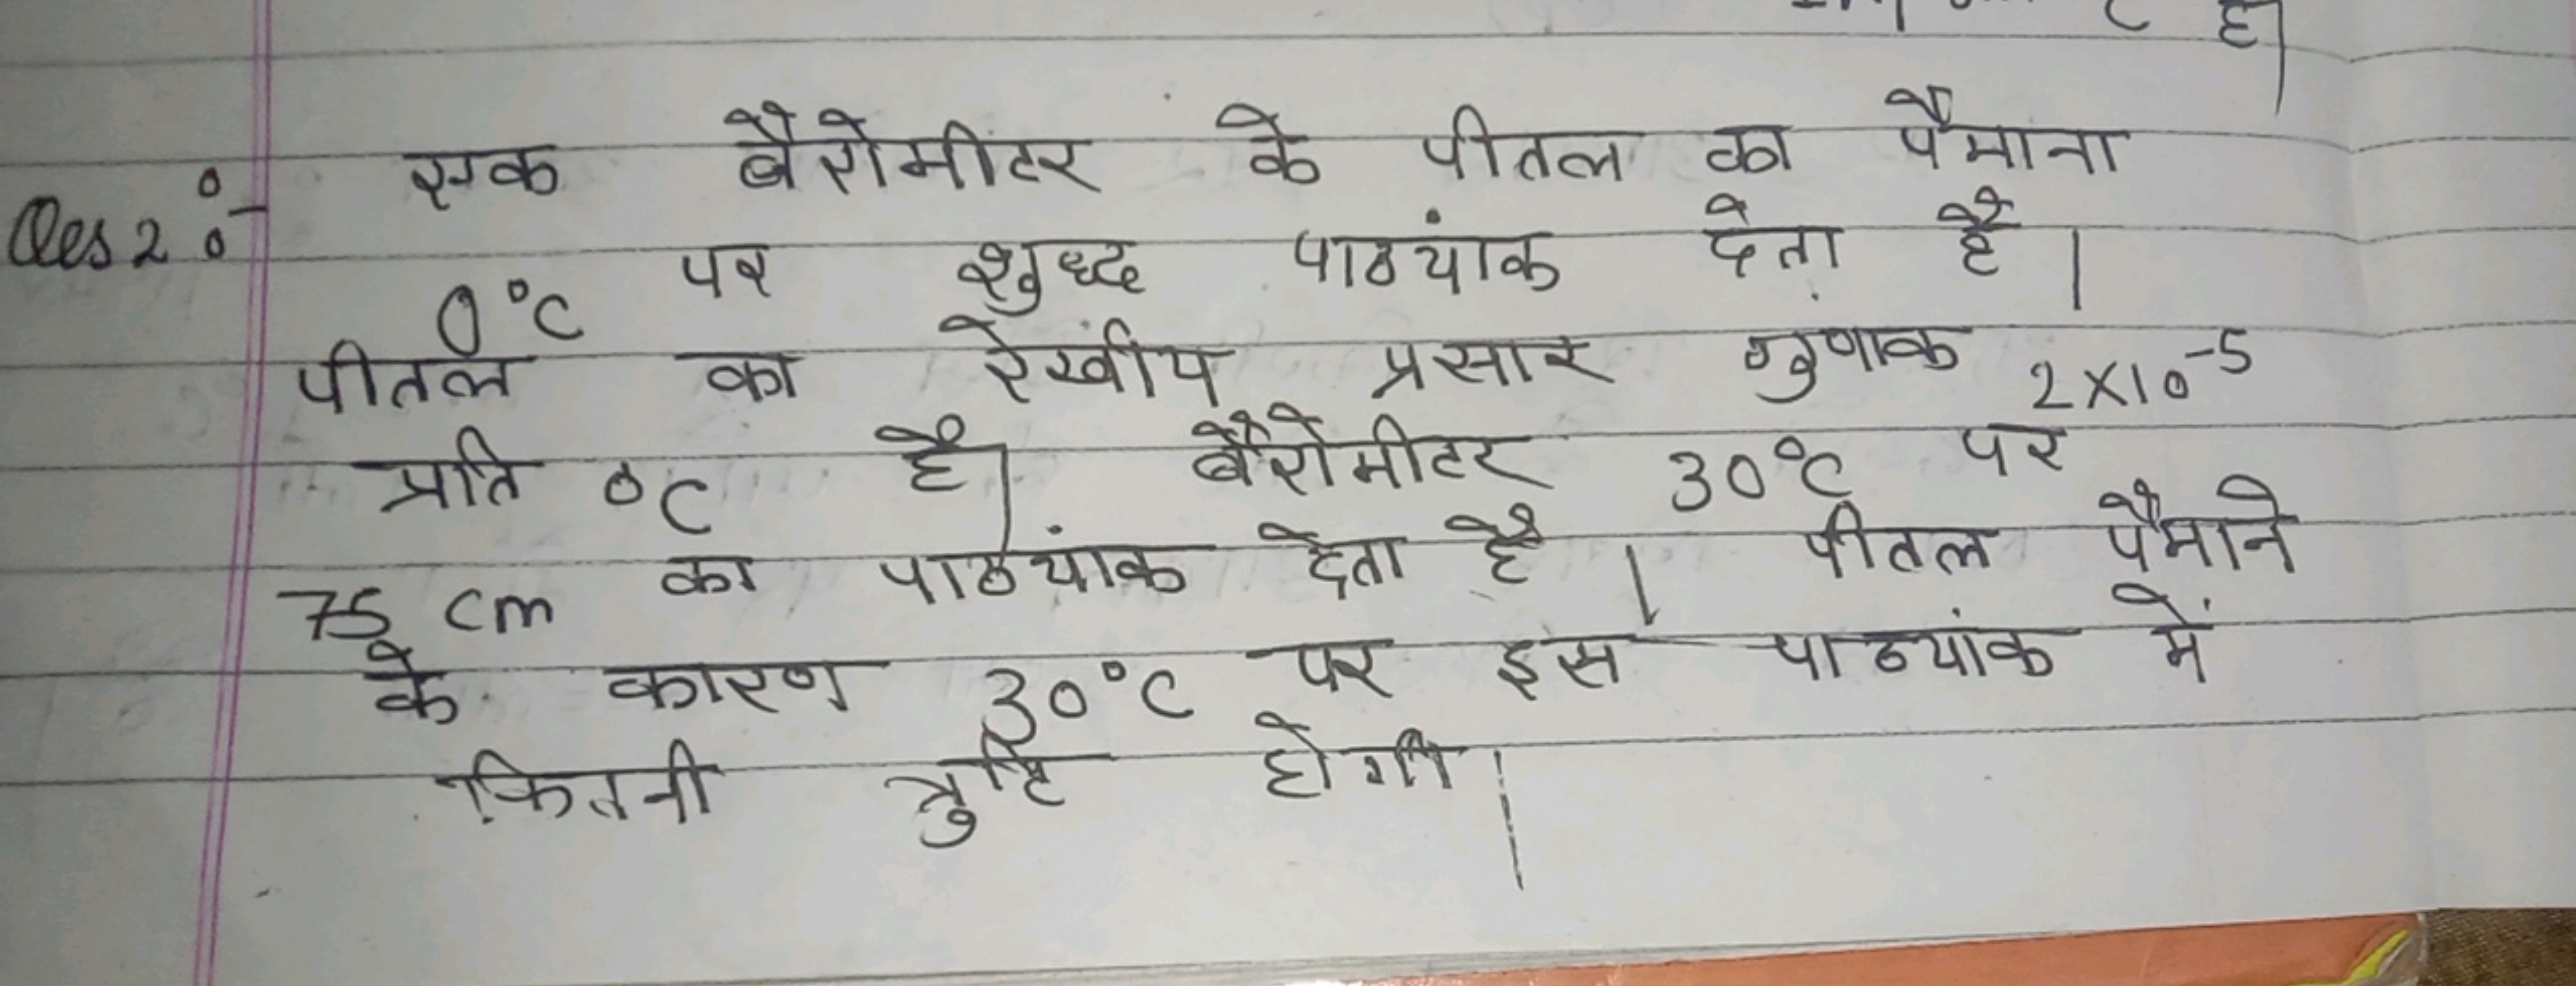 है|
Qes 2 :- एक बैरोमीटर के पीतल का पैमाना
0°C पर शुध्द पाठयांक देता है |
पीतल का रेखीय प्रसार गुणाक 2X10⁻⁵
प्रति °C है| बैरोमीटर 30°C पर
75 cm का पाठयांक देता है | पीतल पैमाने
के कारण 30°C पर इस पाठयांक में
कितनी त्रुटि होगी |